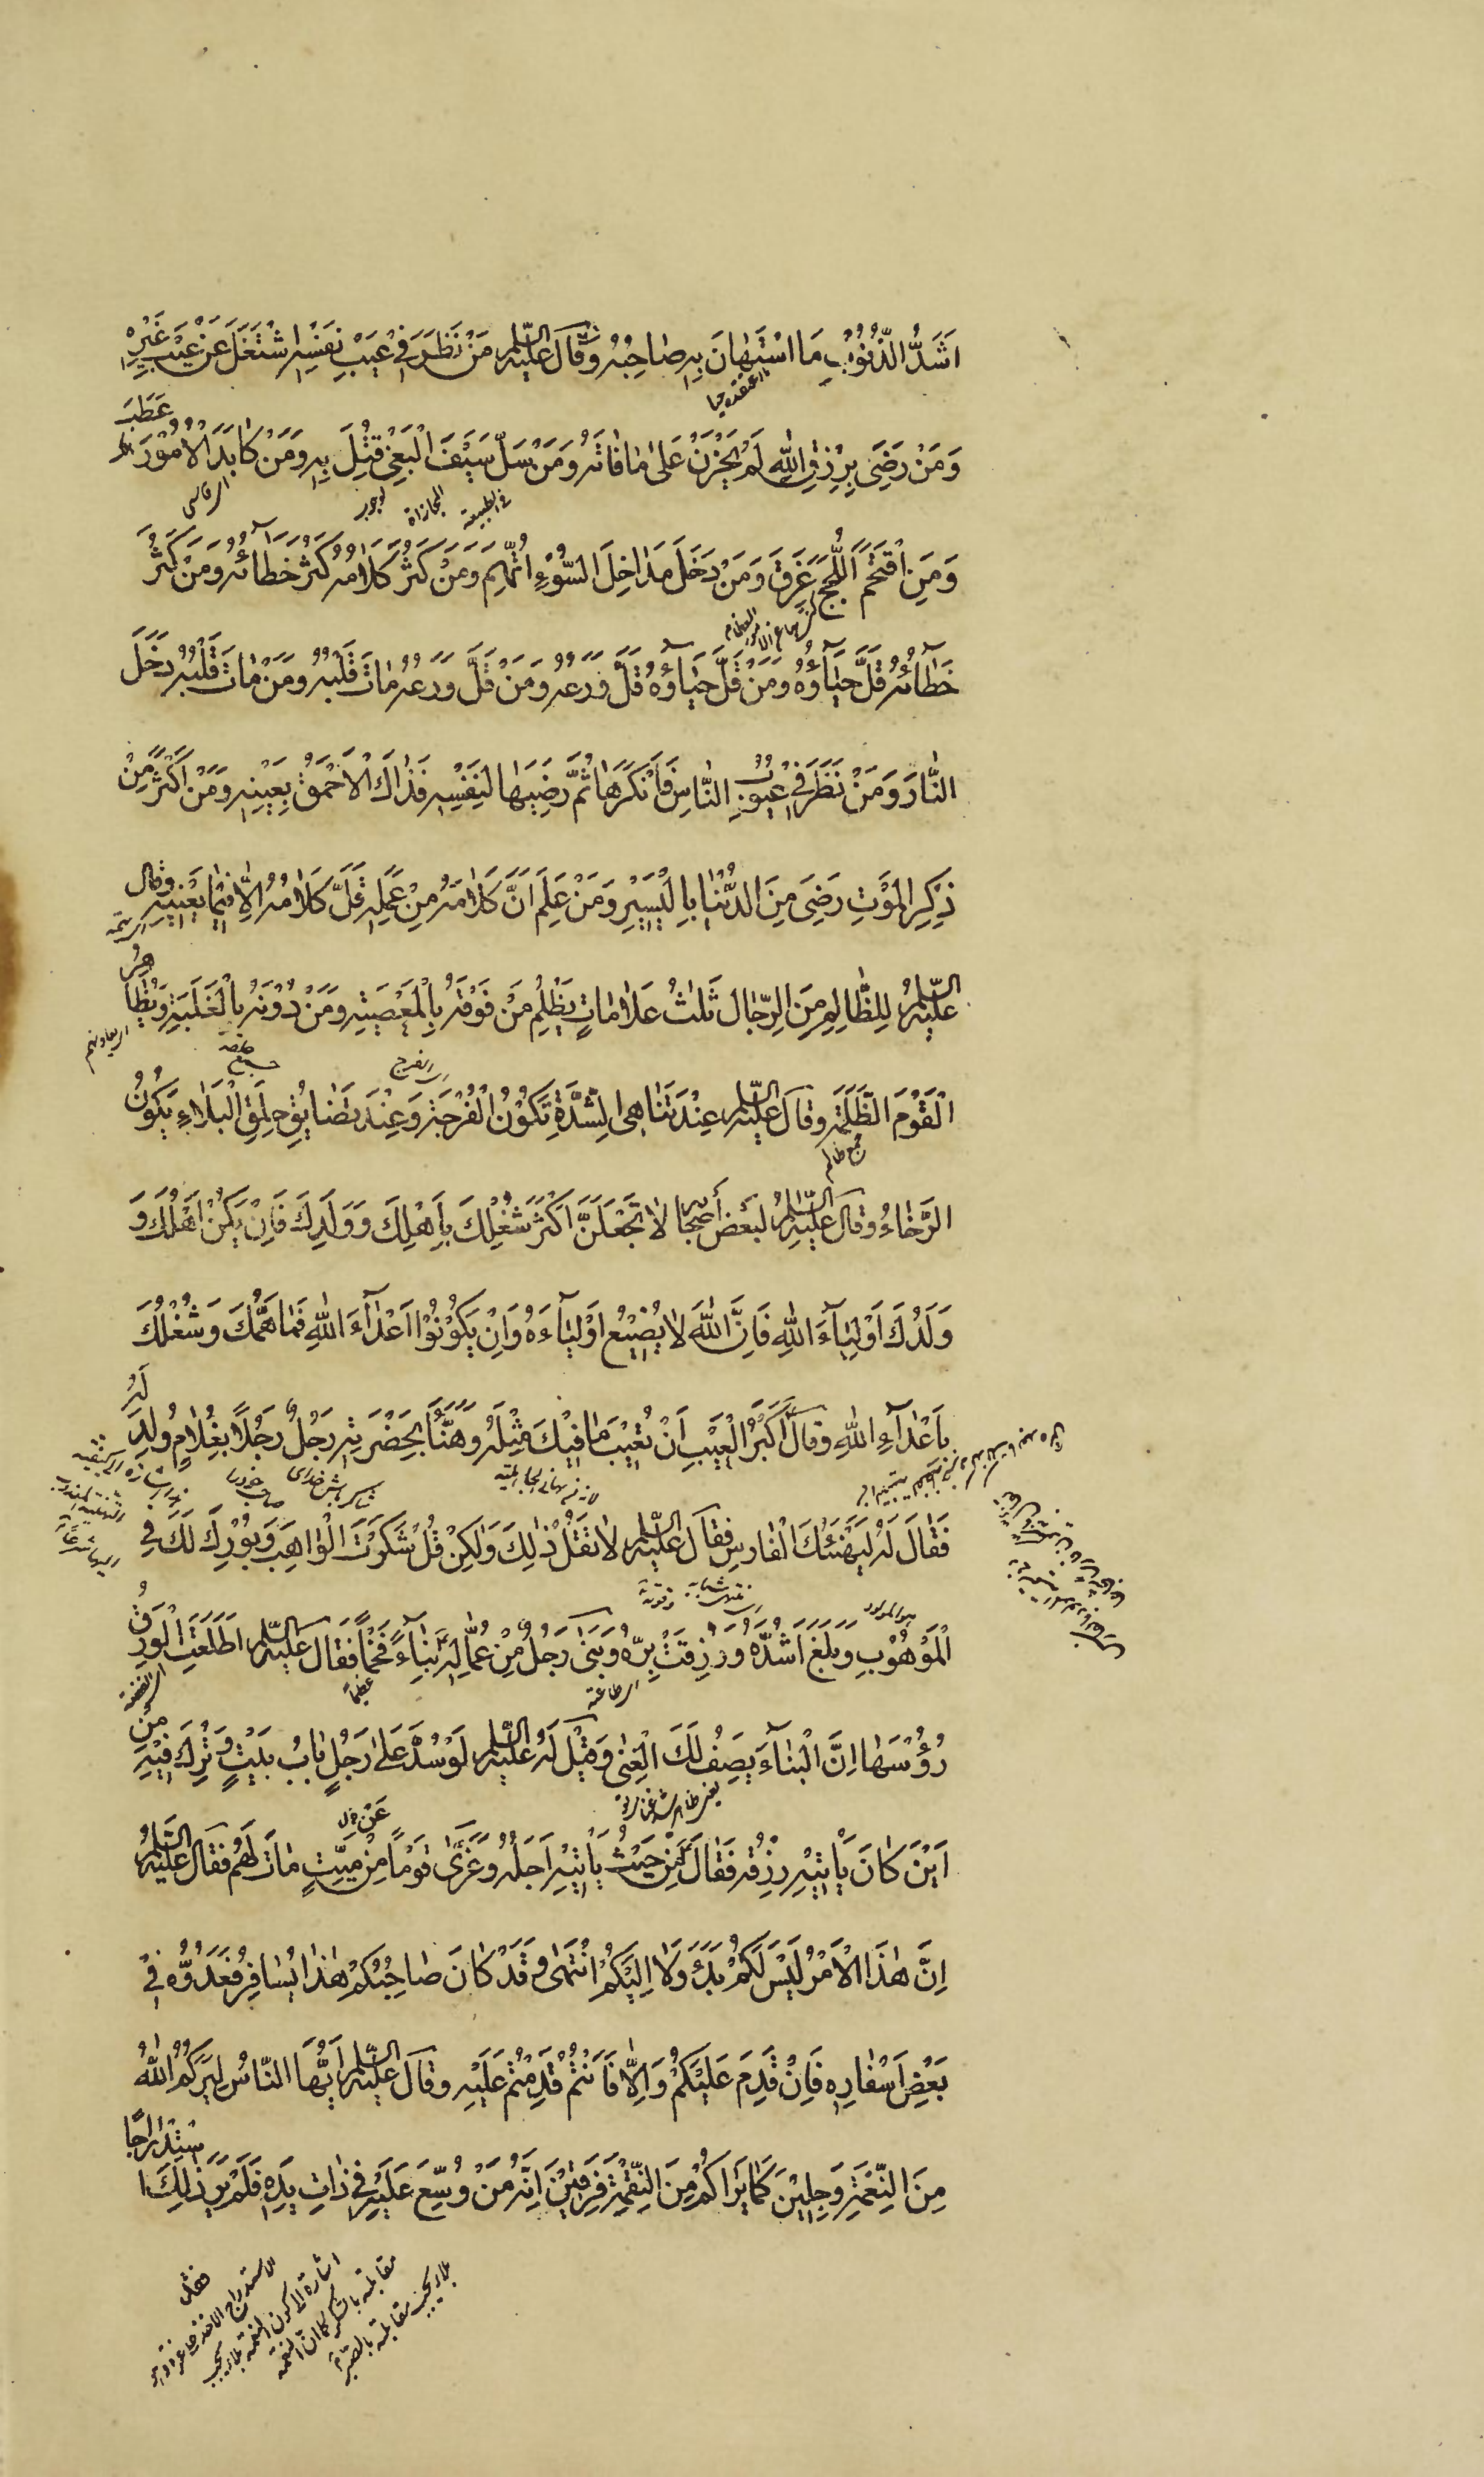 اَشَدُّ الذُّنُوْبِ مَا اسْتَهٰانَ بِهِ صٰاحِبُهُ وَقٰالَ عَلَيْهِ السَّلٰمُ مَنْ نَظَرَ فِيْ عَيْبِ نَفْسِهِ اشْتَغَلَ عَنْ عَيْبِ غَيْرِهِ
وَمَنْ رَضِيَ بِرِزْقِ اللهِ لَمْ يَحْزَنْ عَلىٰ مٰا فٰاتَهُ وَمَنْ سَلَّ سَيْفَ الْبَغْيِ قُتِلَ بِهِ وَمَنْ كٰابَدَ الْاُمُوْرَ عَطَبَ
وَمَنِ اقْتَحَمَ اللُّجَجَ غَرِقَ وَمَنْ دَخَلَ مَدٰاخِلَ السُّوْءِ اتُّهِمَ وَمَنْ كَثُرَ كَلٰامُهُ كَثُرَ خَطَآئُهُ وَمَنْ كَثُرَ
خَطٰآئُهُ قَلَّ حَيٰآؤُهُ وَمَنْ قَلَّ حَيٰآؤُهُ قَلَّ وَرَعُهُ وَمَنْ قَلَّ وَرَعُهُ مٰاتَ قَلْبُهُ وَمَنْ مٰاتَ قَلْبُهُ دَخَلَ
النّٰارَ وَمَنْ نَظَرَ فِيْ عُيُوْبِ النّٰاسِ فَاَنْكَرَهٰا ثُمَّ رَضِيَهٰا لِنَفْسِهِ فَذٰاكَ الْاَحْمَقُ بِعَيْنِهِ وَمَنْ اَكْثَرَ مِنْ
ذِكْرِ الْمَوْتِ رَضِيَ مِنَ الدُّنْيٰا بِالْيَسِيْرِ وَمَنْ عَلِمَ اَنَّ كَلٰامَهُ مِنْ عَمَلِهِ قَلَّ كَلٰامُهُ اِلّٰا فِيْمٰا يَعْنِيْهِ وقال
عَلَيْهِ السَّلٰمُ لِلظّٰالِمِ مِنَ الرِّجٰالِ ثَلٰثُ عَلٰامٰاتٍ يَظْلِمُ مَنْ فَوْقَهُ بِالْمَعْصِيَةِ وَمَنْ دُوْنَهُ بِالْغَلَبَةِ وَيُظٰاهِرُ
الْقَوْمَ الظَّلَمَةَ وقالَ عَلَيْهِ السَّلٰمُ عِنْدَ تَنٰاهِي الشِّدَّةِ تَكُوْنُ الْفُرْجَةُ وَعِنْدَ تَضٰايُقِ حِلَقِ الْبَلٰاءِ يَكُوْنُ
جمع ظالم
الرَّخٰاءُ وَقٰالَ عَلَيْهِ السَّلٰمُ لِبَعْضِ أَصْحٰابِهِ لٰا تَجْعَلَنَّ اَكْثَرَ شُغْلِكَ بِاَهْلِكَ وَوَلَدِكَ فَاِنْ يَكُنْ اَهْلُكَ وَ
وَلَدُكَ اَوْلِيٰآءَ اللهِ فَاِنَّ اللهَ لٰا يُضِيْعُ اَوْلِيٰآءَهُ وَاِنْ يَكُوْنُوْا اَعْدٰآءَ اللهِ فَمٰا هَمُّكَ وَشُغْلُكَ
بِاَعْدٰآءِ اللهِ وقالَ اَكْبَرُ الْعَيْبِ اَنْ تُعِيْبَ مٰا فِيْكَ مِثْلُهُ وَهَنَّأَ بِحَضْرَتِهِ رَجُلٌ رَجُلًا بِغُلٰامٍ وُلِدَ لَهُ
فَقٰالَ لَهُ لِيَهْنِئْكَ الْفٰارِسُ فقالَ عَلَيْهِ السَّلٰمُ لٰا تَقُلْ ذٰلِكَ وَلٰكِنْ قُلْ شَكَرْتَ الْوٰاهِبَ وَبُوْرِكَ لَكَ فِي
الْمَوْهُوْبِ وَبَلَغَ اَشُدَّهُ وَرُزِقْتَ بِرَّهُ وَبَنىٰ رَجُلٌ مِنْ عُمّٰالِهِ بِنٰآءً فَخْمًا فَقٰالَ عَلَيْهِ السَّلٰمُ اَطْلَعَتِ الْوَرِقُ
عظيماً
رُؤُسَهٰا اِنَّ الْبِنٰآءَ يَصِفُ لَكَ الْغِنىٰ وَقِيْلَ لَهُ عَلَيْهِ السَّلٰمُ لَوْ سُدَّ عَلىٰ رَجُلٍ بٰابُ بَيْتٍ وَتُرِكَ فِيْهِ مِنْ
اَيْنَ كٰانَ يَأْتِيْهِ رِزْقُهُ فَقٰالَ مِنْ حَيْثُ يَأْتِيْهِ اَجَلُهُ وَعَزّىٰ قَوْمًا مِنْ مَيِّتٍ مٰاتَ لَهُمْ فَقٰالَ عَلَيْهِ السَّلٰمُ
اِنَّ هٰذَا الْاَمْرَ لَيْسَ لَكُمْ بَدَءَ وَلٰا اِلَيْكُمُ انْتَهىٰ وَقَدْ كٰانَ صٰاحِبُكُمْ هٰذٰا يُسٰافِرُ فَعُدُّوْهُ فِيْ
بَعْضِ اَسْفٰارِهِ فَاِنْ قَدِمَ عَلَيْكُمْ وَاِلّٰا فَاَنْتُمْ قَدِمْتُمْ عَلَيْهِ وقالَ عَلَيْهِ السَّلٰمُ اَيُّهَا النّٰاسُ لِيَرَكُمُ اللهُ
مِنَ النِّعْمَةِ وَجِلِيْنَ كَمٰا يَرٰاكُمْ مِنَ النِّقْمَةِ فَرِقِيْنَ اِنَّهُ مَنْ وُسِّعَ عَلَيْهِ فِيْ ذٰاتِ يَدِهِ فَلَمْ يَرَ ذٰلِكَ اسْتِدْرٰاجًا